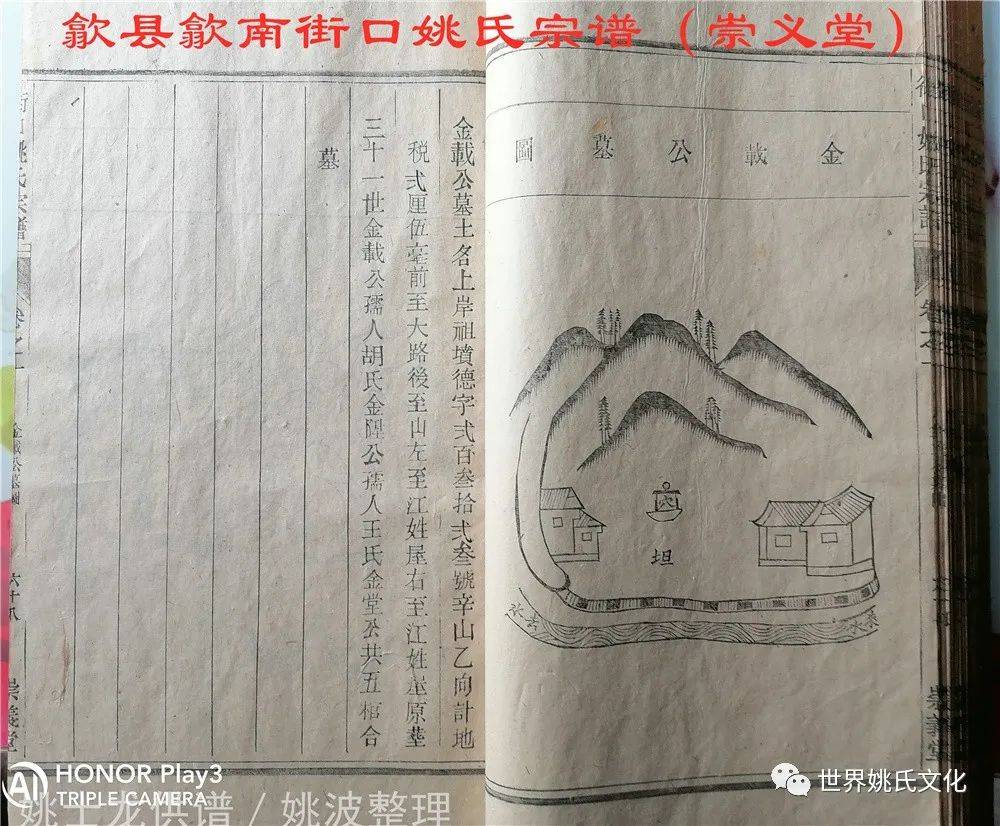 歙县歙南街口姚氏宗谱（崇义堂）
金載公墓圖
穴
坦
水來
金載公墓土名上岸祖墳德字弍百叁拾弍叁號辛山乙向計地
税弍厘伍毫前至大路後至山左至江姓屋右至江姓屋原塟
三十一世金載公孺人胡氏金陞公孺人王氏金堂公共五棺合
墓
街口姚氏宗譜
卷之一
金載公墓圖
六十八
崇義堂
HONOR Play3
TRIPLE CAMERA
世界姚氏文化
姚土龙供谱 / 姚波整理